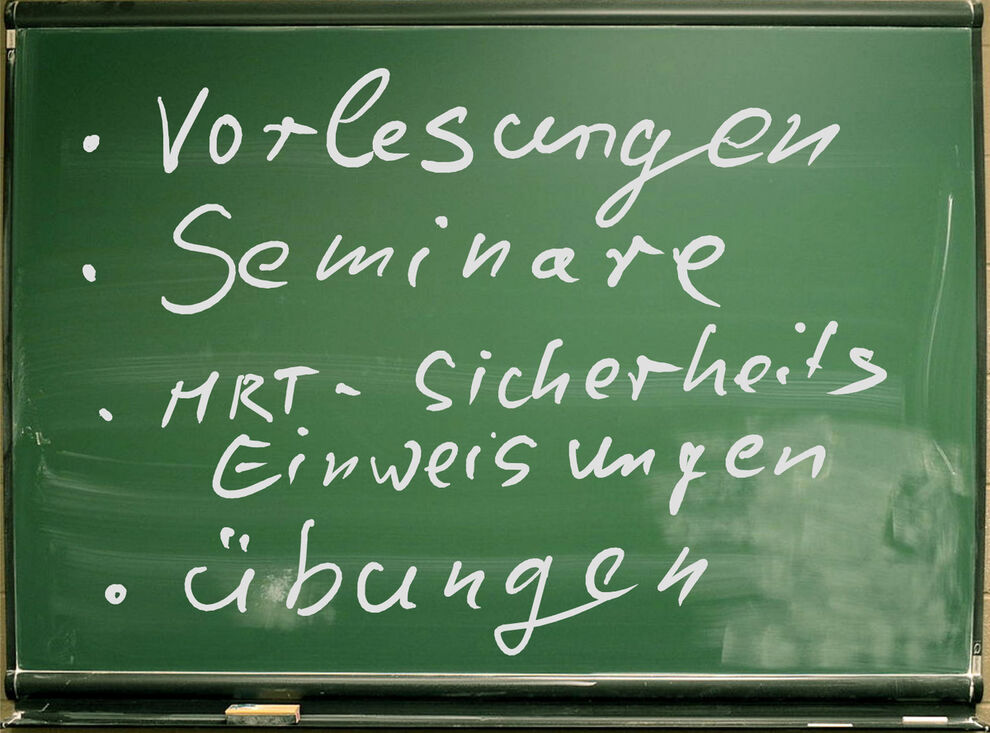 • Vorlesungen
• Seminare
• MRT - Sicherheits
Einweisungen
• Übungen